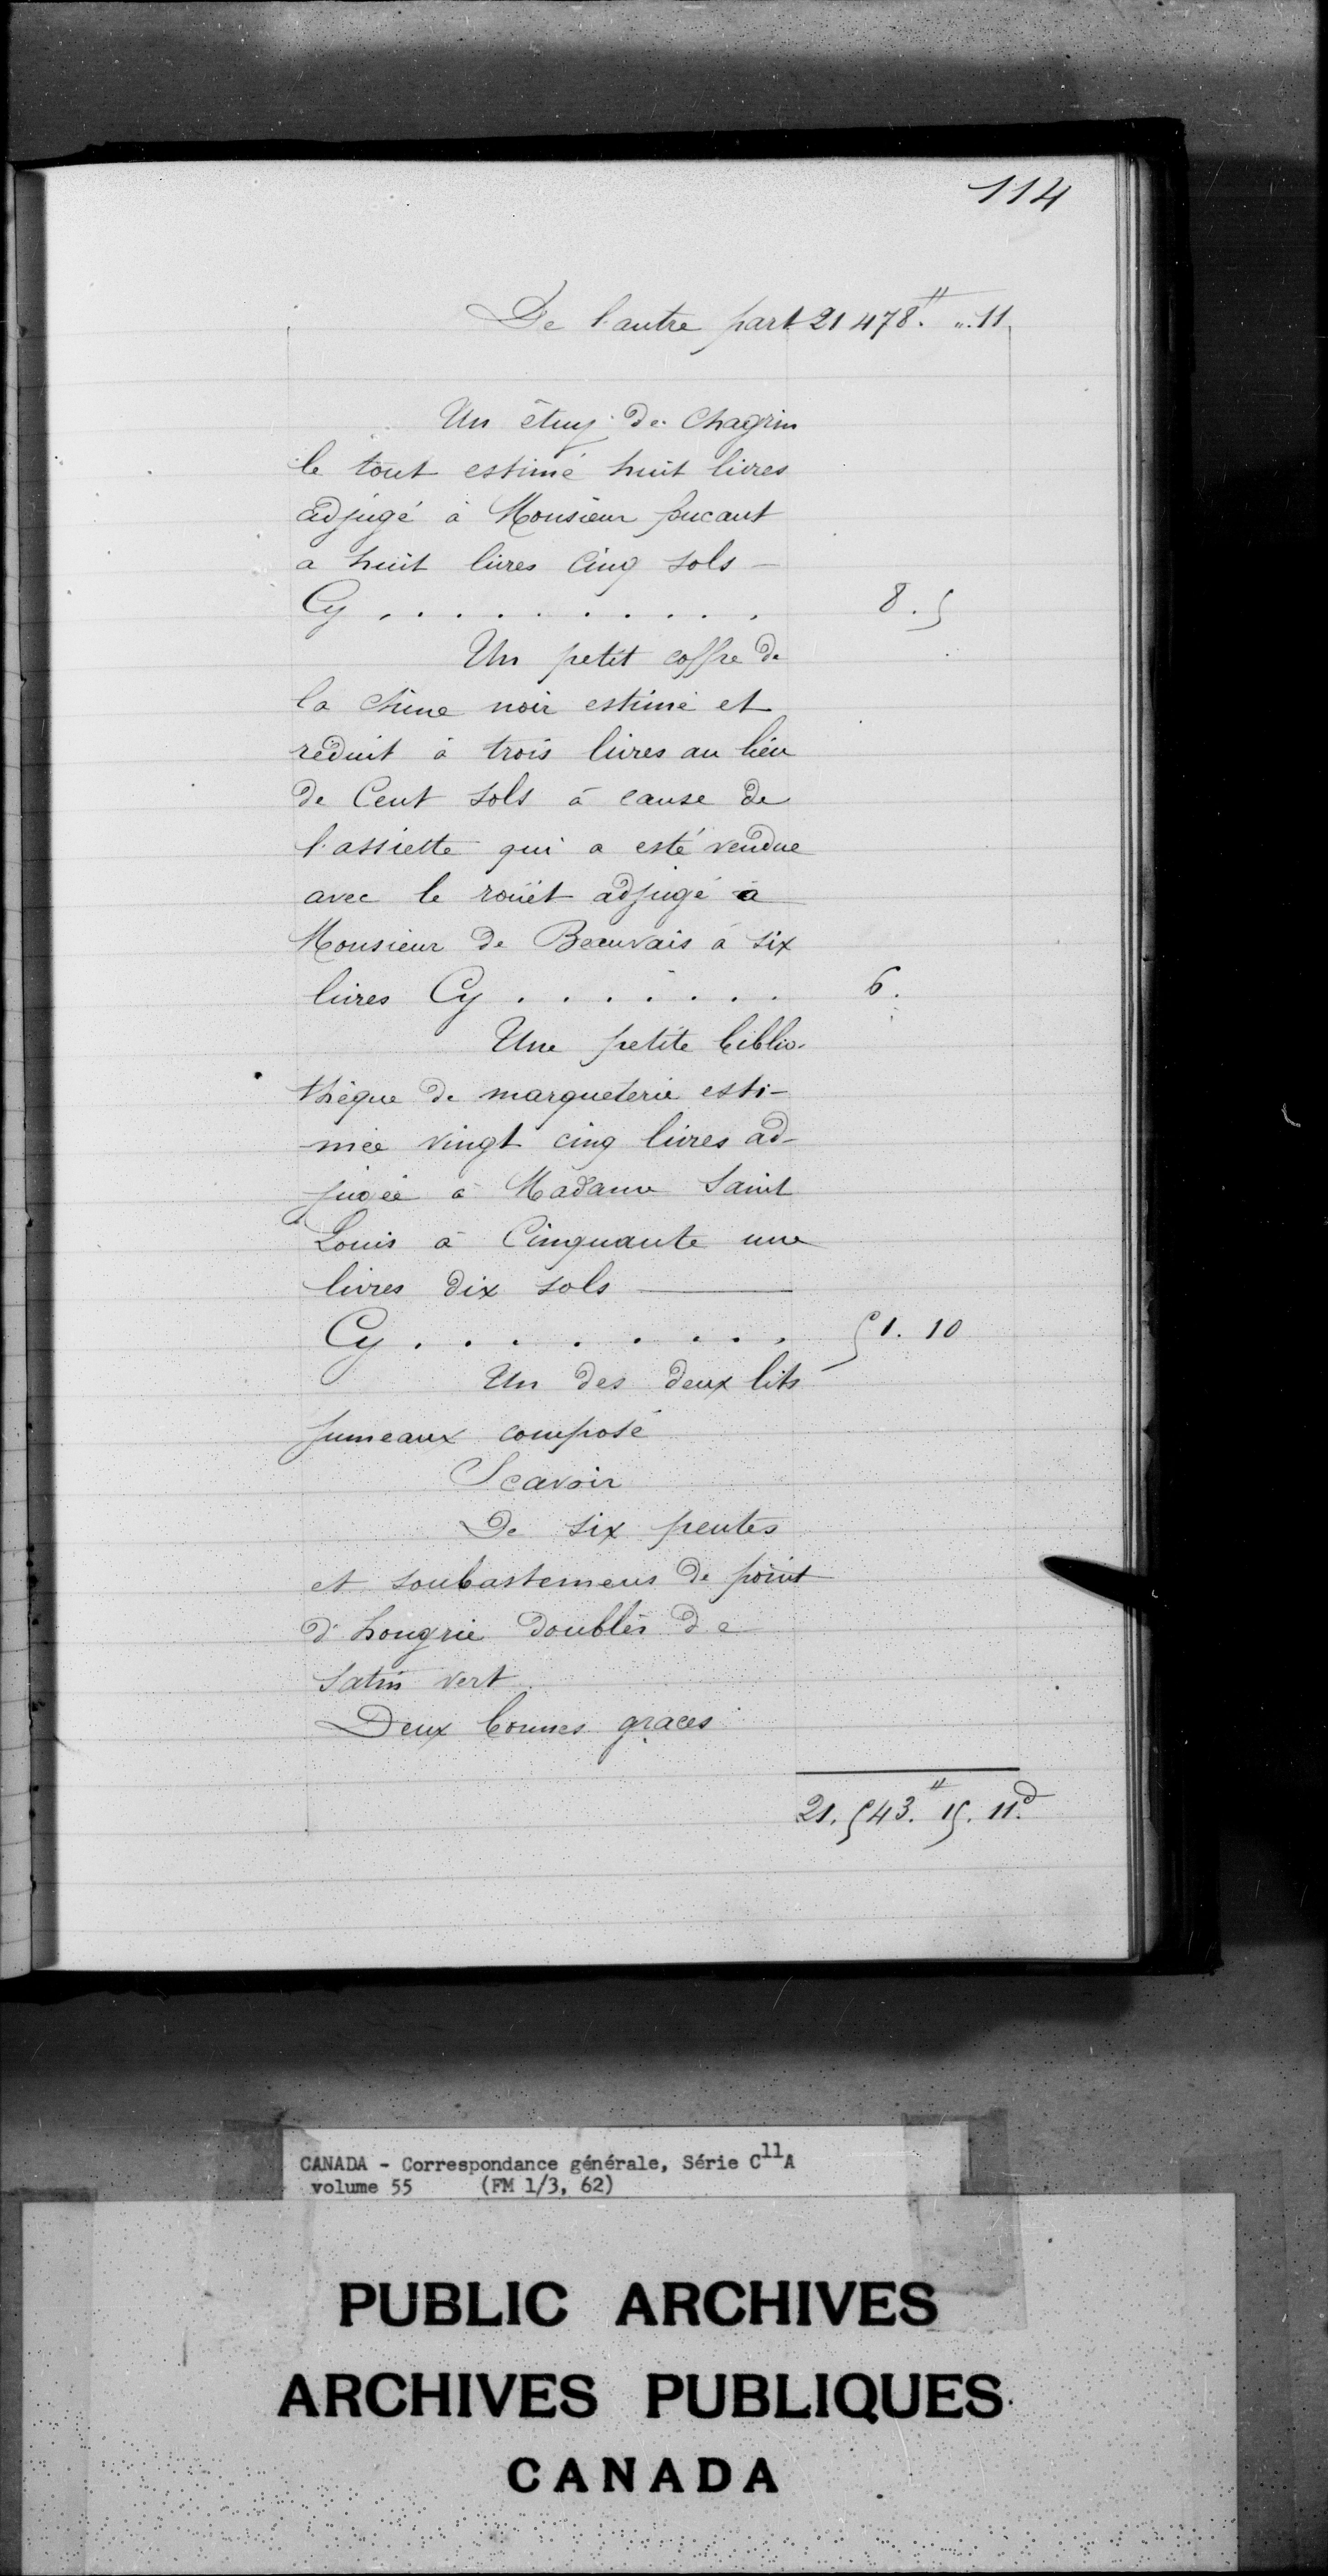 114
De l'autre part 21 478.# ". 11
Un étuy de Chagrin
le tout estimé huit livres
adjugé à Monsieur
a huit livres cinq sols —
Cy . . . . . . . . . . 8. 5
Un petit coffre de
la chine noir estimé et
réduit à trois livres au lieu
de Cent sols à cause de
l'assiette qui a esté vendue
avec le rouët adjugé à
Monsieur de Beauvais à six
livres Cy . . . . . . . 6.
Une petite biblio-
thèque de marqueterie esti-
-mée vingt cinq livres ad-
jugée à Madame Saint
Louis à Cinquante une
livres dix sols —
Cy . . . . . . . . . 51. 10
Un des deux lits
jumeaux composé
Scavoir
De six pentes
et soubastemens de point
d'hongrie doublés de
satin vert
Deux bonnes graces
21. 543.# 15. 11.d
CANADA - Correspondance générale, Série C11A
volume 55 (FM 1/3, 62)
PUBLIC ARCHIVES
ARCHIVES PUBLIQUES
CANADA